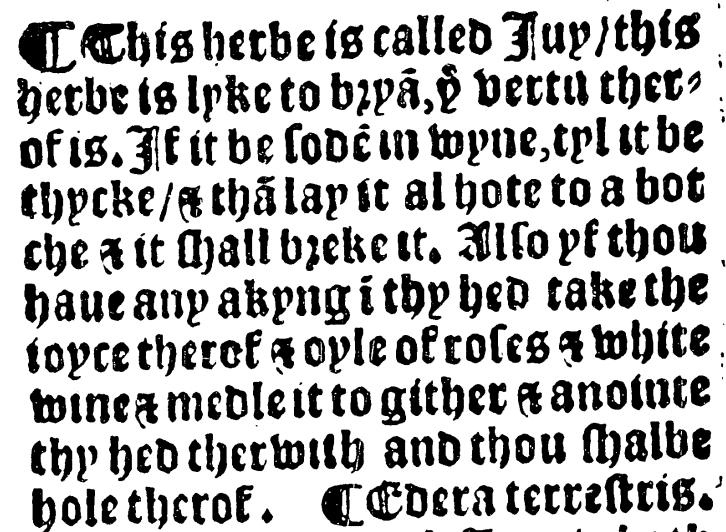 ¶ This herbe is called Juy/this
herbe is lyke to bꝛyā,ẙ vertu ther⸗
of is. If it be ſodē in wyne,tyl it be
thycke/⁊ thā lay it al hote to a bot
che ⁊ it ſhall bꝛeke it. Alſo yf thou
haue any akyng ī thy hed take the
ioyce therof ⁊ oyle of roſes ⁊ white
wine⁊ medle it to gither ⁊ anointe
thy hed therwith and thou ſhalbe
hole therof. ¶ Edera terreſtris.